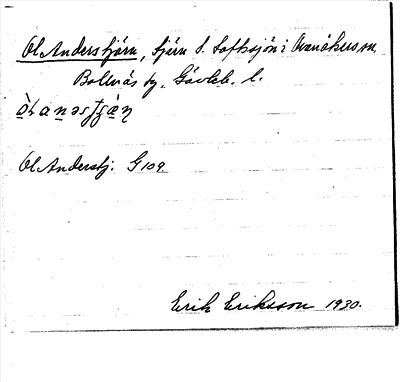 Ol Anderstjärn, tjärn S. Loftssjön i Ovanåkers sn.
Bollnäs tg. Gävleb. l.
Ol Anderstj. G 109.
Erik Eriksson 1930.